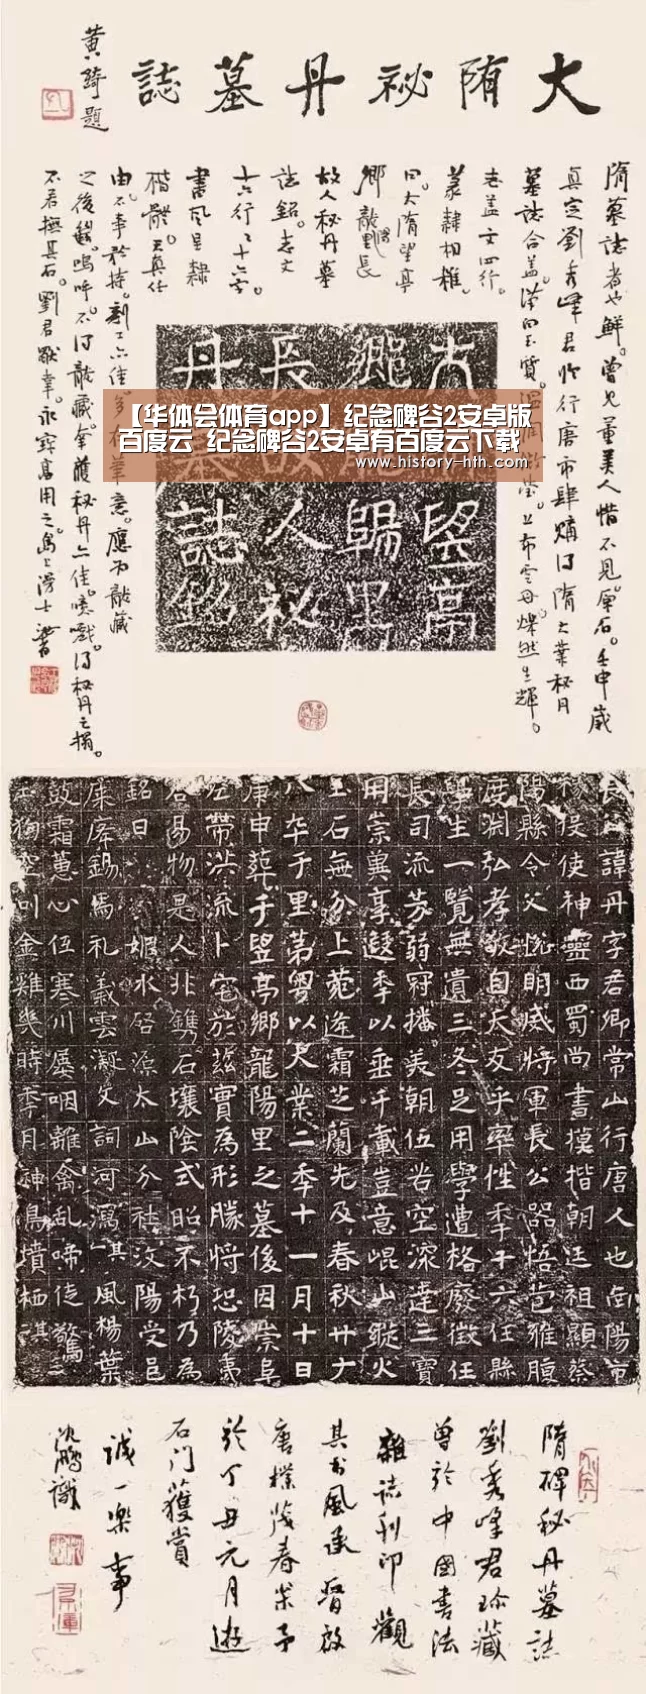 大隋祕丹墓誌
黃綺題
隋墓誌者也鮮。曾見董美人惜不見原石。壬申歲
真定劉秀峰君於行唐市肆購得隋大業秘丹
墓誌合蓋。潔白玉質。溫潤 上布雲母燦然生輝。
志蓋文四行。
篆隸相雜。
曰。大隋望亭
鄉 里長
故人秘丹墓
誌銘。志文
十六行行十六字。
書風呈隸
楷體。天真任
由。不事矜持。刻工亦佳。多 意。應為 藏
之後 嗚呼。不得 藏。 獲秘丹亦佳。噫嘻。得秘丹之搨。
不若撫其石。劉君 幸。永寶 用之。
大 望高
鄉 陽里
長故人祕
丹墓誌銘
【华体会体育app】纪念碑谷2安卓版
百度云 纪念碑谷2安卓有百度云下载
www.history-hth.com
長 諱丹字君卿常山行唐人也 陽
役使神靈西蜀尚書摸楷朝廷祖顯蔡
陽縣令父悅明威將軍長公器悟苞雅
度淵弘孝敬自天友乎率性年十六任縣
學生一覽無遺三冬足用學遭格廢徵任
長司流芳弱冠播美朝伍 空深達三寶
用崇冀享遐季以垂千載豈意崐山縱火
玉石無分上苑逄霜芝蘭先及春秋廿六
卒于里第粵以大業二季十一月十日
庚申葬于望亭鄉龍陽里之墓後因崇阜
左帶洪流卜宅於茲實為形勝將恐陵夷
谷易物是人非鐫石壤陰式昭不朽乃為
銘曰 媯水啓源太山分社汶陽受邑
麋 錫焉禮義雲凝文詞河瀉其風楊葉
鼓霜蕙心伍寒川 咽離禽亂啼徒驚
狗空叫金雞幾時季月神鳥墳栖其
隋碑秘丹墓誌
劉秀峰君珍藏
曾於中國書法
雜誌刊印觀
其書風承晉啟
唐樸茂春 予
於丁丑元月遊
石门獲賞
誠一樂事
沈鵬識